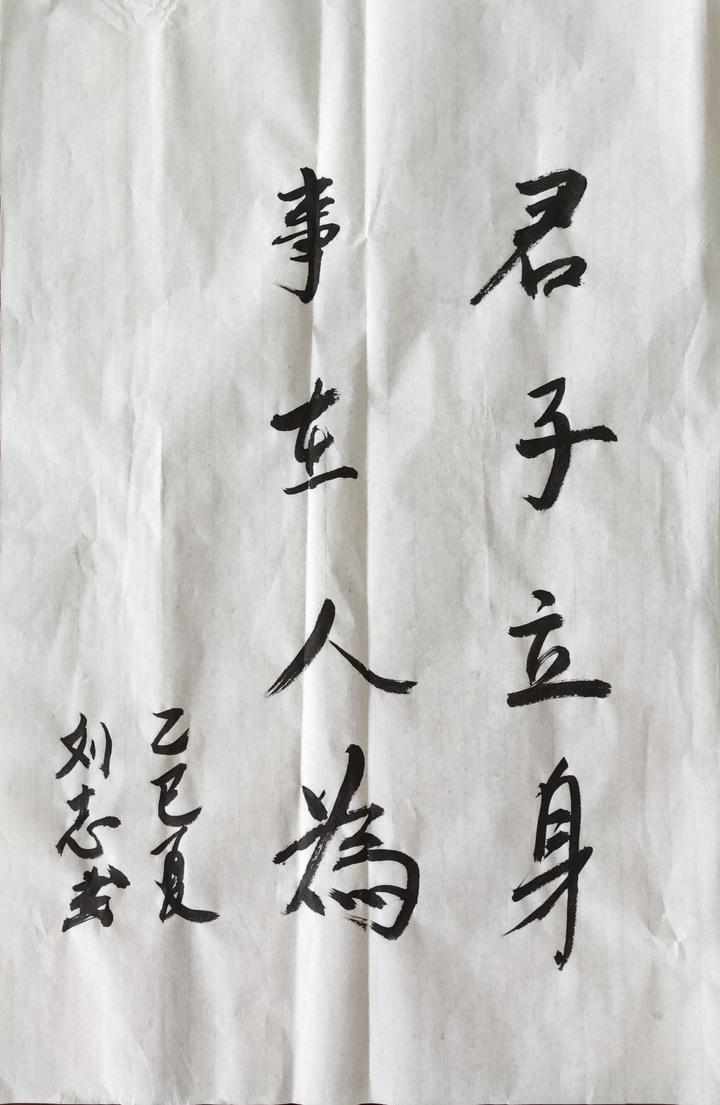 君子立身
事在人為
乙巳夏
刘志